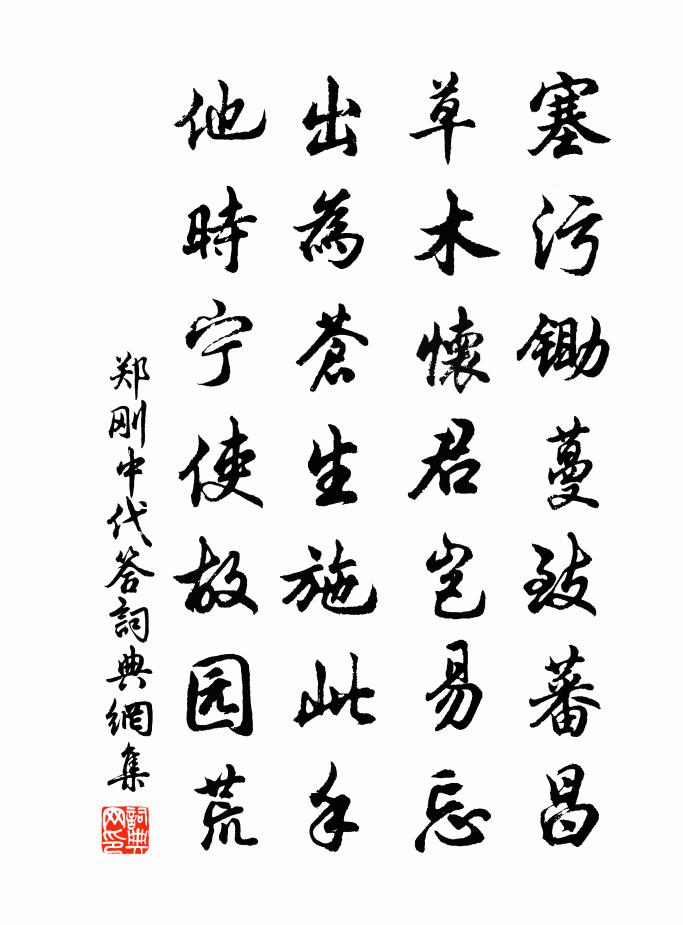 塞污锄蔓致蕃昌
草木懷君岂易忘
出為蒼生施此手
他時宁使故园荒
郑刚中代答詞典網集
詞典网印